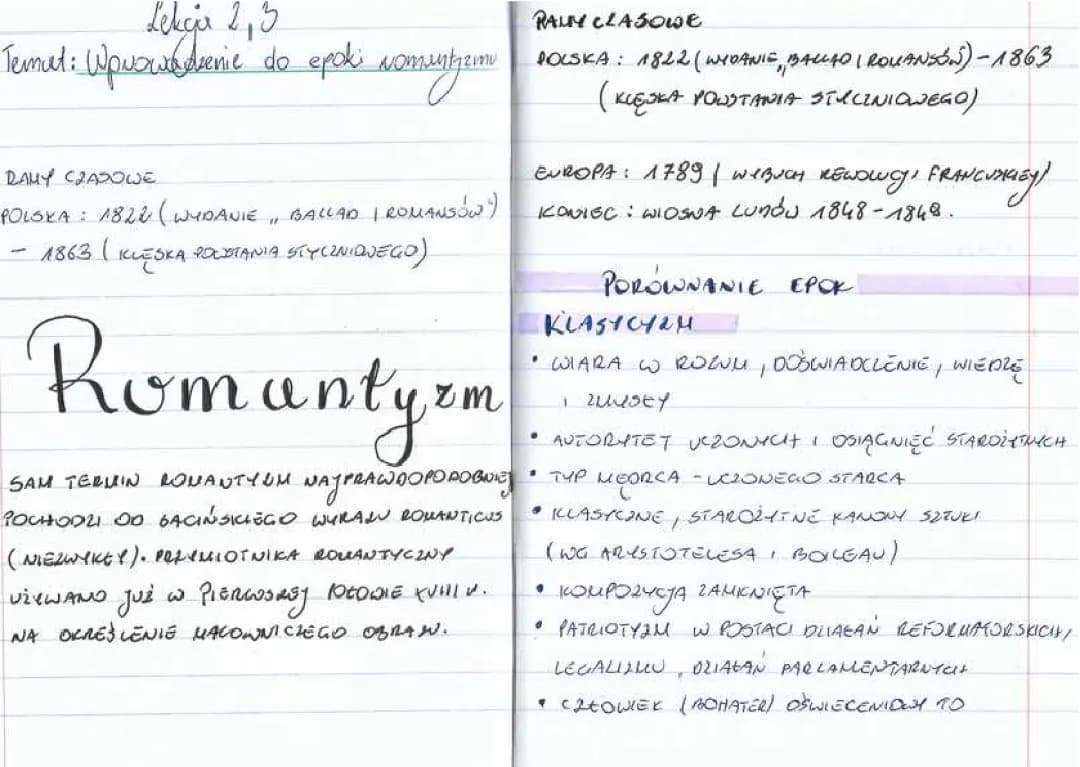 Lekcja 2,3
Temat: Wprowadzenie do epoki romantyzmu
RAMY CZASOWE
POLSKA : 1822 ( WYDANIE „ BALLAD I ROMANSÓW")
– 1863 ( KLĘSKA POWSTANIA STYCZNIOWEGO)
Romantyzm
SAM TERMIN ROMANTYZM NAJPRAWDOPODOBNIEJ
POCHODZI OD ŁACIŃSKIEGO WYRAZU ROMANTICUS
( NIEZWYKŁY). PRZYMIOTNIKA ROMANTYCZNY
UŻYWANO JUŻ W PIERWSZEJ POŁOWIE XVIII W.
NA OKREŚLENIE MALOWNICZEGO OBRAZU.
RAMY CZASOWE
POLSKA : 1822 ( WYDANIE „BALLAD I ROMANSÓW) – 1863
( KLĘSKA POWSTANIA STYCZNIOWEGO)
EUROPA : 1789 ( WYBUCH REWOLUCJI FRANCUSKIEJ)
KONIEC : WIOSNA LUDÓW 1848-1848.
PORÓWNANIE EPOK
KLASYCYZM
• WIARA W ROZUM , DOŚWIADCZENIE, WIEDZĘ
I ZMYSŁY
• AUTORYTET UCZONYCH I OSIĄGNIĘĆ STAROŻYTNYCH
• TYP MĘDRCA – UCZONEGO STARCA
• KLASYCZNE , STAROŻYTNE KANONY SZTUKI
( WG ARYSTOTELESA I BOILEAU)
• KOMPOZYCJA ZAMKNIĘTA
• PATRIOTYZM W POSTACI DZIAŁAŃ REFORMATORSKICH,
LEGALIZMU , DZIAŁAŃ PARLAMENTARNYCH
• CZŁOWIEK (BOHATER) OŚWIECENIOWY TO